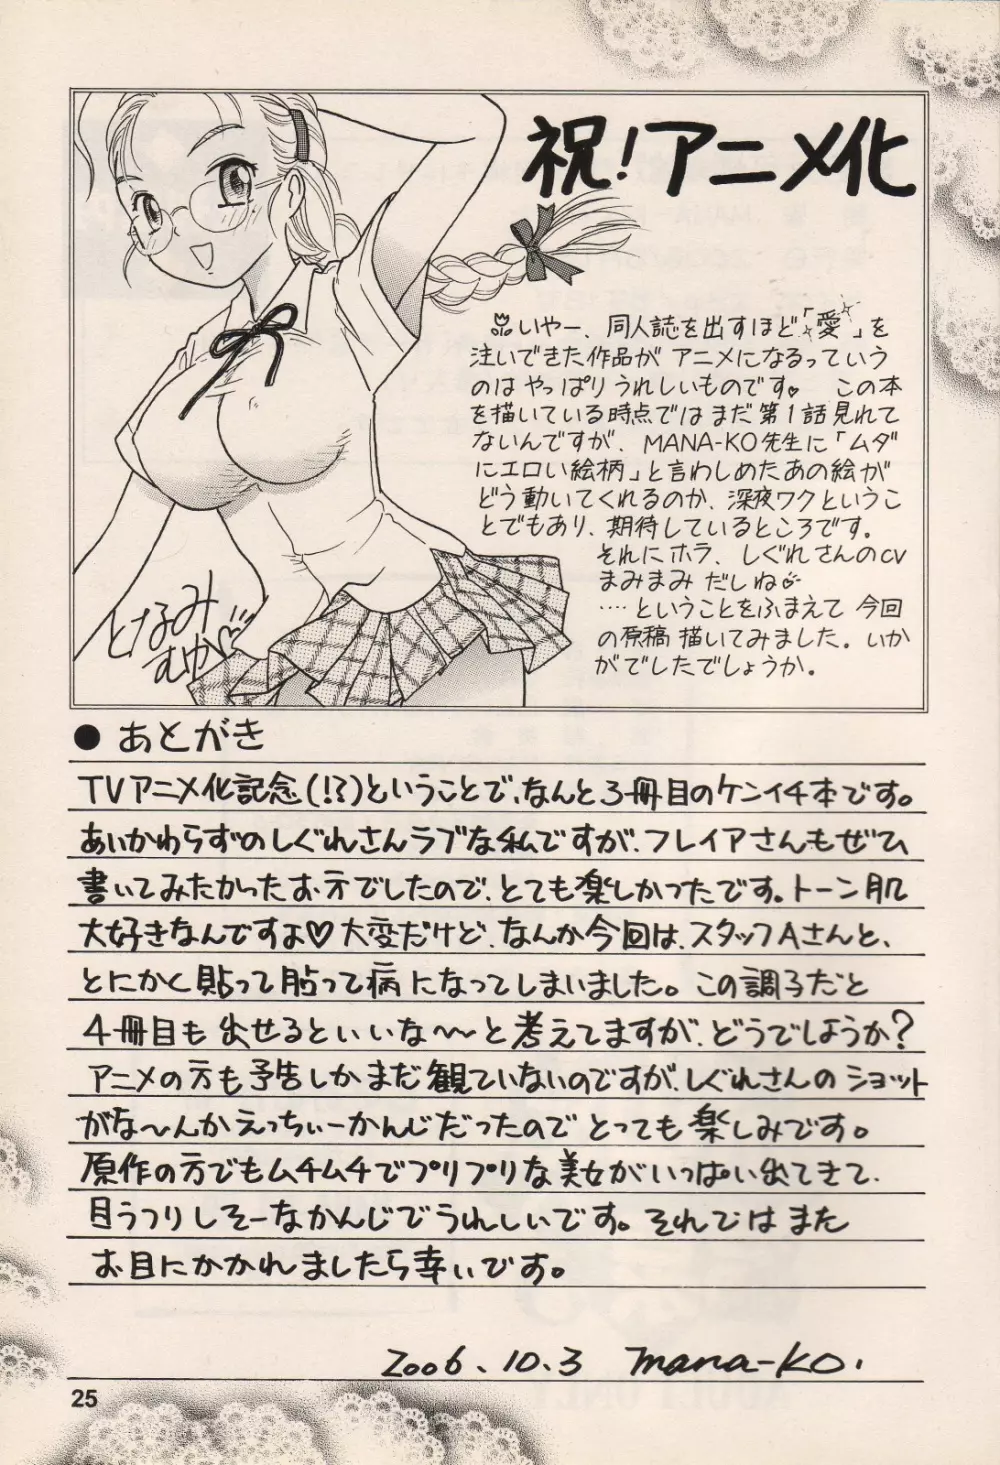 祝!アニメ化
いやー、同人誌を出すほど「愛」を
注いできた作品が アニメになるっていう
のは やっぱり うれしいものです♥ この本
を描いている時点では まだ 第1話 見れて
ないんですが、MANA-KO先生に「ムダ
にエロい絵柄」と言わしめたあの絵が
どう動いてくれるのか、深夜ワクというこ
とでもあり、期待しているところです。
それにホラ、しぐれさんのCV
まみまみ だしね
‥‥ということをふまえて 今回
の原稿 描いてみました。いか
がでしたでしょうか。
となみ
むか♡
●あとがき
TVアニメ化記念(!?)ということで、なんと3冊目のケンイチ本です。
あいかわらずのしぐれさんラブな私ですが、フレイアさんもぜひ
書いてみたかったお方でしたので、とても楽しかったです。トーン肌
大好きなんですよ♡大変だけど、なんか今回は、スタッフAさんと、
とにかく貼って貼って病になってしまいました。この調子だと
4冊目も出せるといいな〜〜と考えてますが、どうでしょうか?
アニメの方も予告しかまだ観ていないのですが、しぐれさんのショット
がな〜んかえっちぃーかんじだったのでとっても楽しみです。
原作の方でもムチムチでプリプリな美女がいっぱい出てきて、
目うつりしそーなかんじでうれしいです。それではまた
お目にかかれましたら幸いです。
2006.10.3 mana-KO.
25